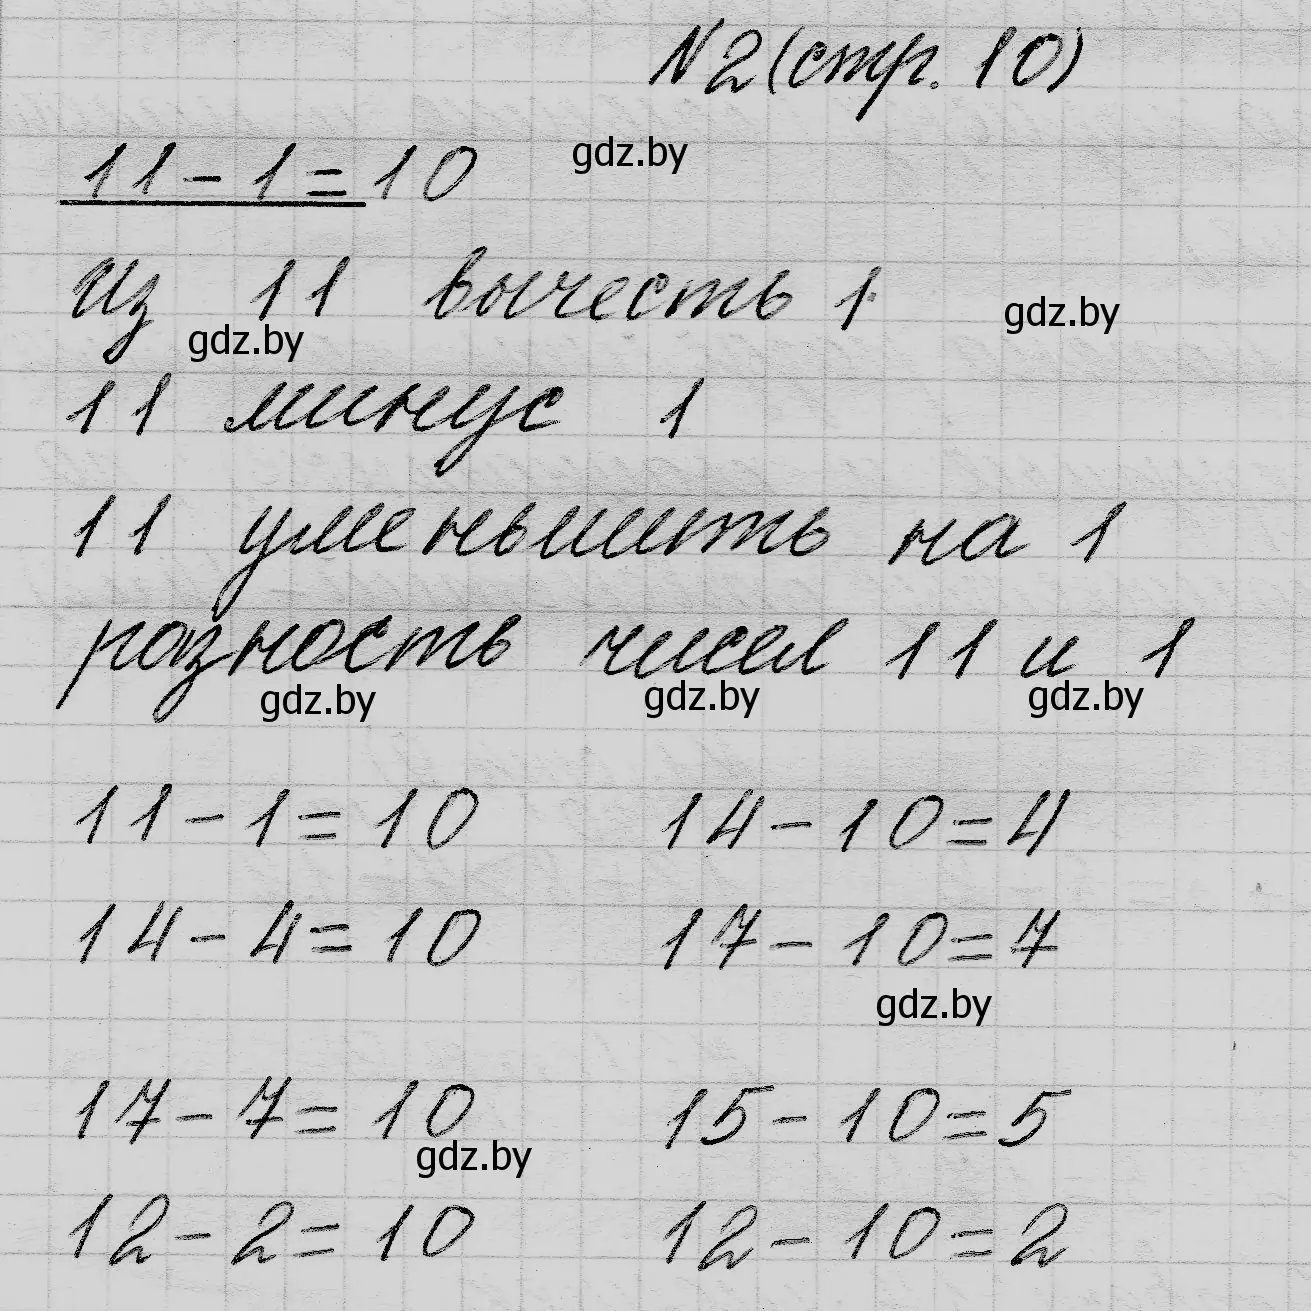 №2 (стр. 10)
11 - 1 = 10 gdz.by
из 11 вычесть 1 gdz.by
gdz.by
11 минус 1
11 уменьшить на 1
разность чисел 11 и 1
gdz.by gdz.by gdz.by
11 - 1 = 10 14 - 10 = 4
14 - 4 = 10 17 - 10 = 7
gdz.by
17 - 7 = 10 15 - 10 = 5
gdz.by
12 - 2 = 10 12 - 10 = 2